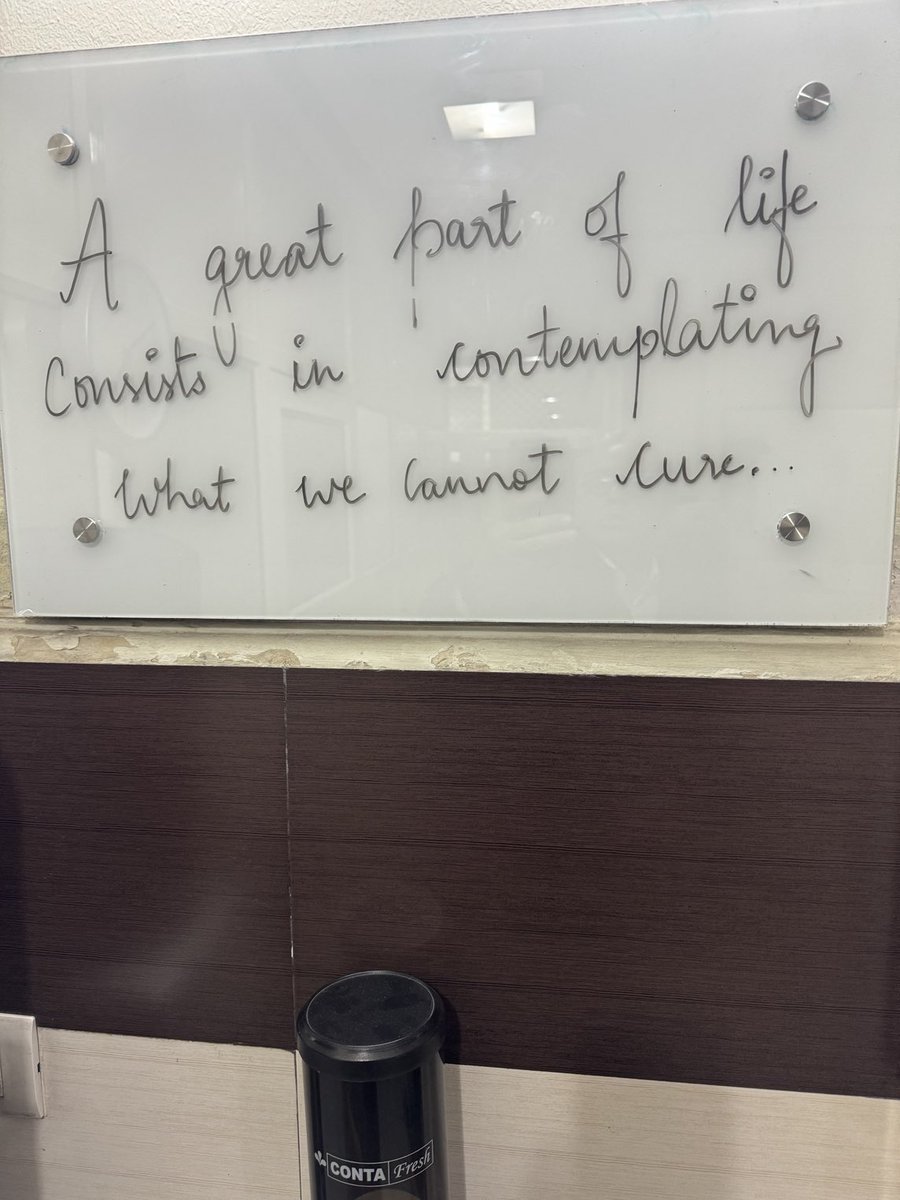 A great part of life
Consists in contemplating
What we cannot cure...
CONTA Fresh